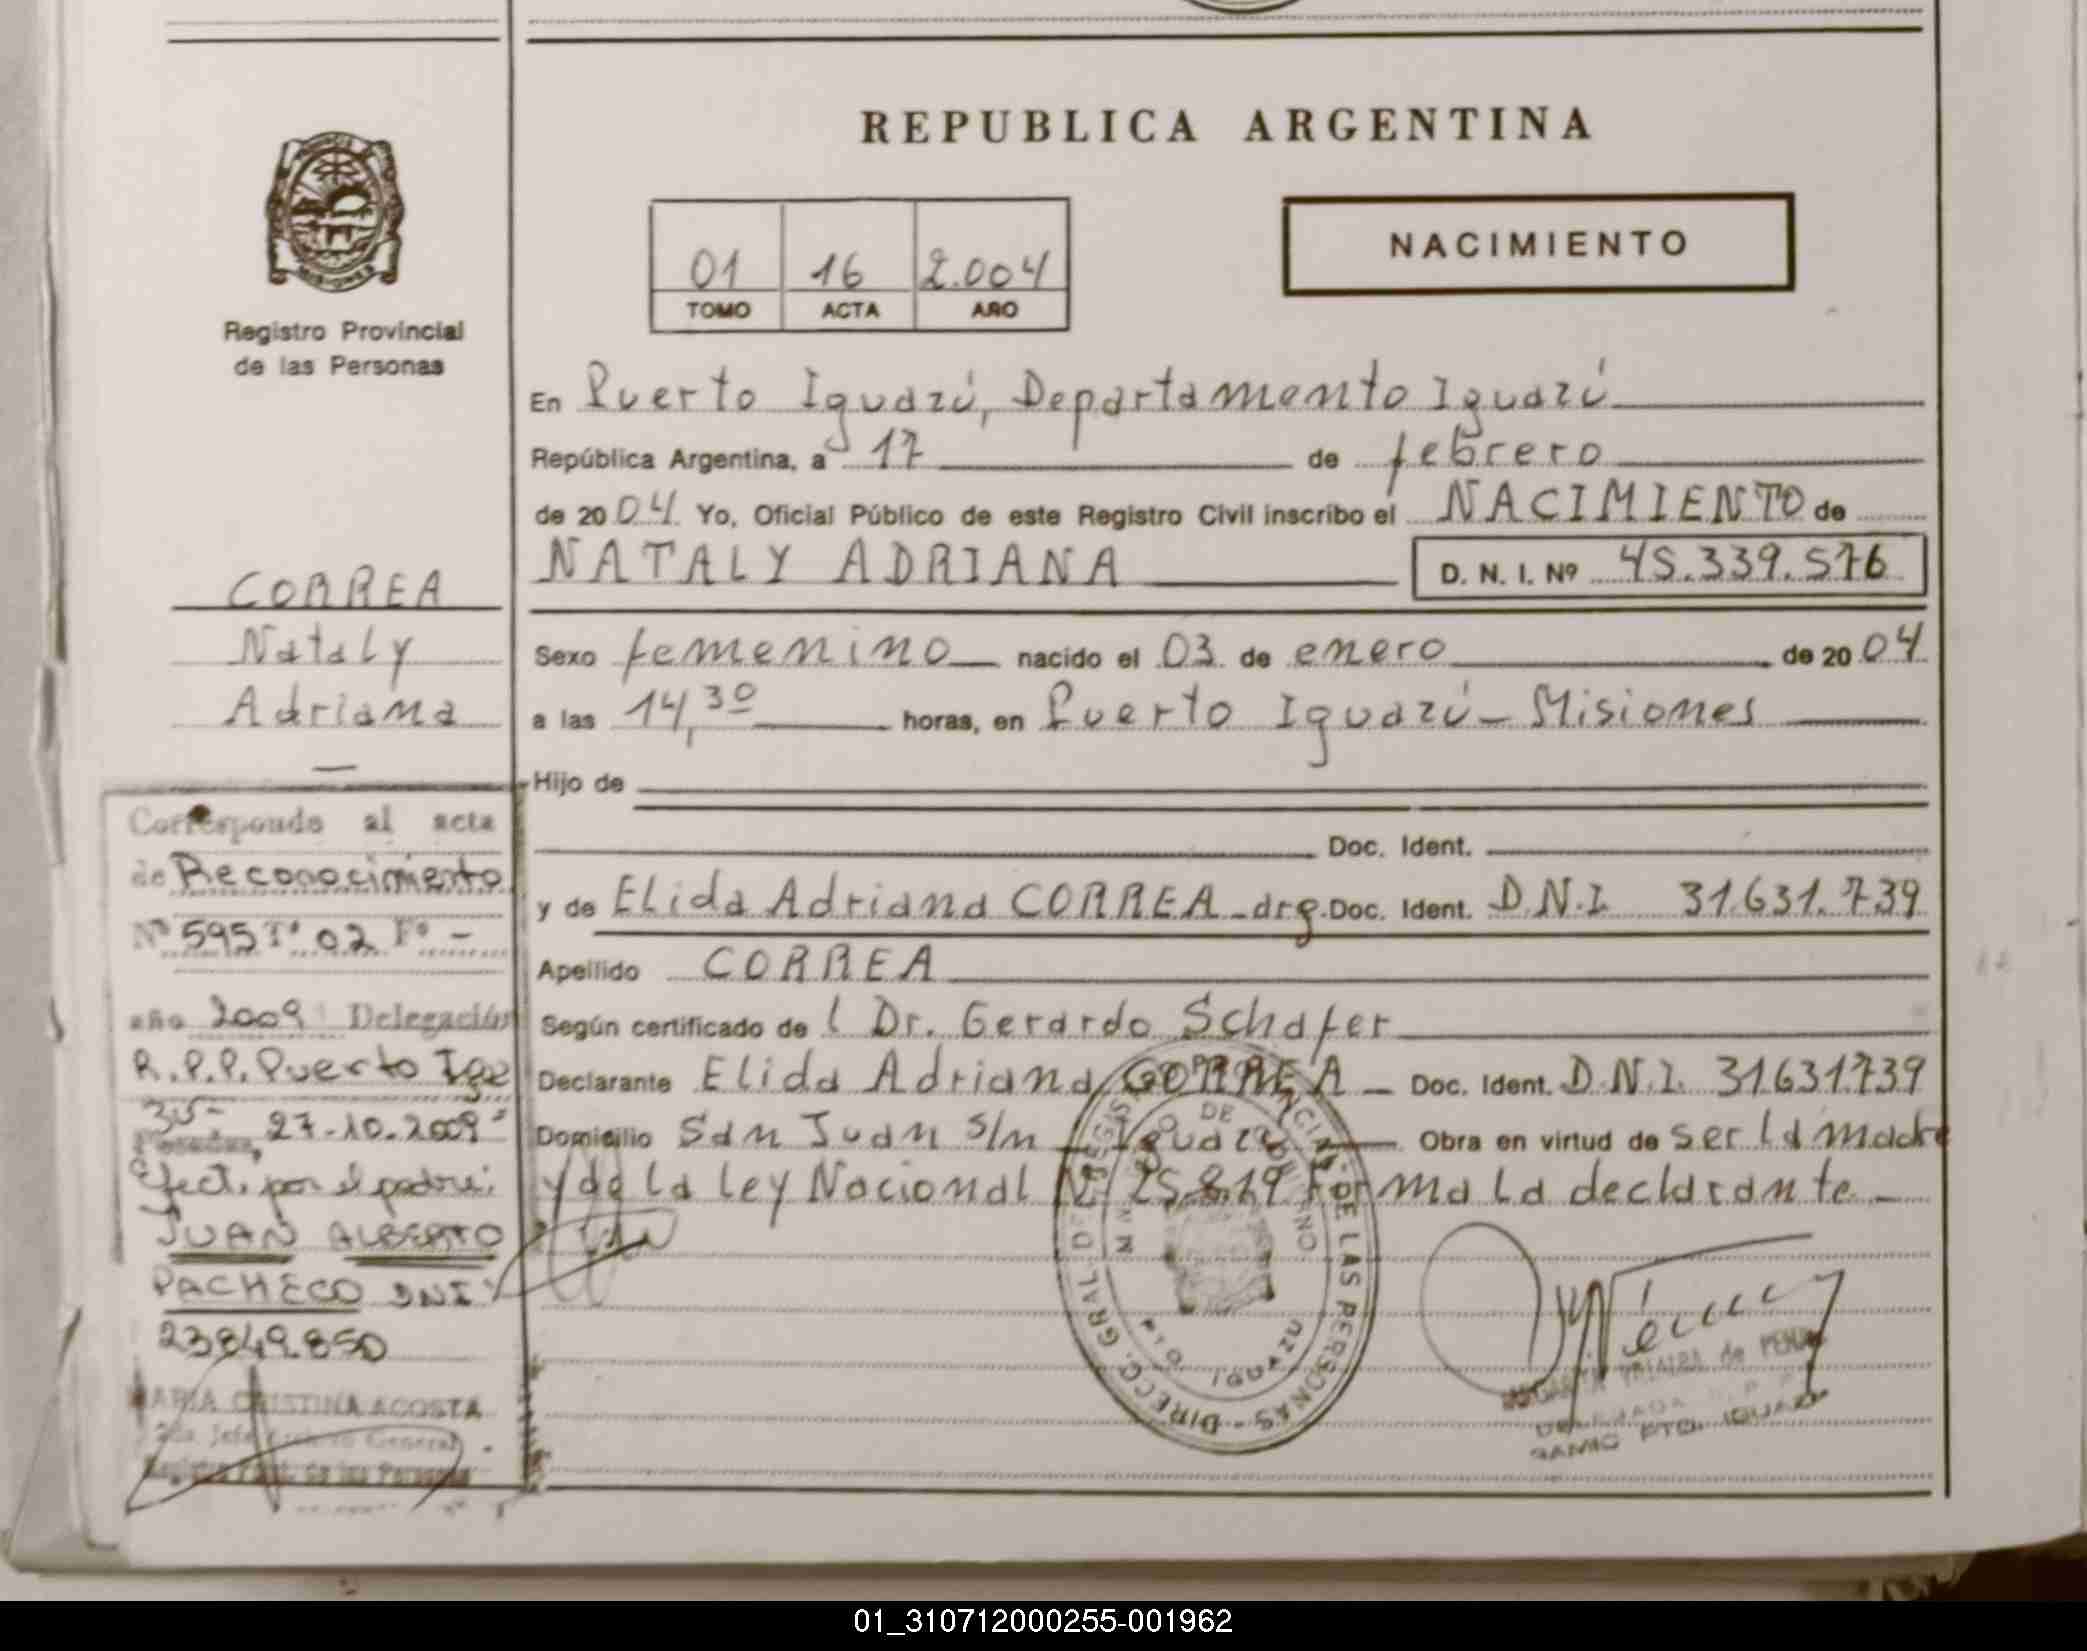 REPUBLICA ARGENTINA
NACIMIENTO
01 16 2.004
TOMO ACTA AÑO
Registro Provincial
de las Personas
En Puerto Iguazú, Departamento Iguazú
República Argentina, a 17 de febrero
de 2004 Yo, Oficial Público de este Registro Civil inscribo el NACIMIENTO de
NATALY ADRIANA D. N. I. Nº 45.339.576
Sexo femenino nacido el 03 de enero de 2004
a las 14,30 horas, en Puerto Iguazú - Misiones
Hijo de
Doc. Ident.
y de Elida Adriana CORREA - arg. Doc. Ident. D.N.I. 31.631.739
Apellido CORREA
Según certificado de l Dr. Gerardo Schafer
Declarante Elida Adriana CORREA - Doc. Ident. D.N.I. 31.631.739
Domicilio San Juan s/n - Iguazú. Obra en virtud de ser la madre
y de la ley Nacional Nº 25.819 Forma la declarante -
CORREA
Nataly
Adriana
Corresponde al acta
de Reconocimiento
Nº 595 Tº 02 Fº -
año 2009 Delegación
R.P.P. Puerto Igz
Posadas, 27-10-2009
efect. por el padre:
JUAN ALBERTO
PACHECO DNI
23849.850
MARIA CRISTINA ACOSTA
2da. Jefe General
Registro de las Personas
DIRECC. GRAL DE REGISTRO PROVINCIAL DE LAS PERSONAS
PTO. IGUAZU
de PENA
DELEGADA
RAMIC PTO. IGUAZU
01_310712000255-001962